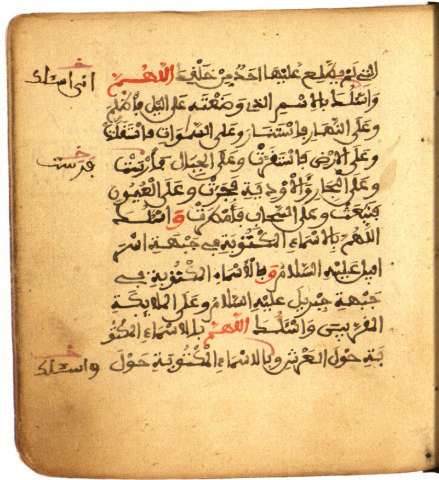 التي لم يطلع عليها احد من خلفك اللهم
انى اسئلك
واسئلك بالاسم الذي وضعته على اليل فاظلم
وعلى النهار فاستنار وعلى السموات فاستقلت
وعلى الارض فاستقرت وعلى الجبال فارست
فرست
وعلى البحار والاودية فجرت وعلى العيون
فنبعت وعلى السحاب فامطرت واسئلك
اللهم بالاسماء المكتوبة في جبهة اسر
افيل عليه السلام وبالاسماء المكتوبة في
جبهة جبريل عليه السلام وعلى الملايكة
المقربين واسئلك اللهم بالاسماء المكتو
بة حول العرش وبالاسماء المكتوبة حول
واسئلك